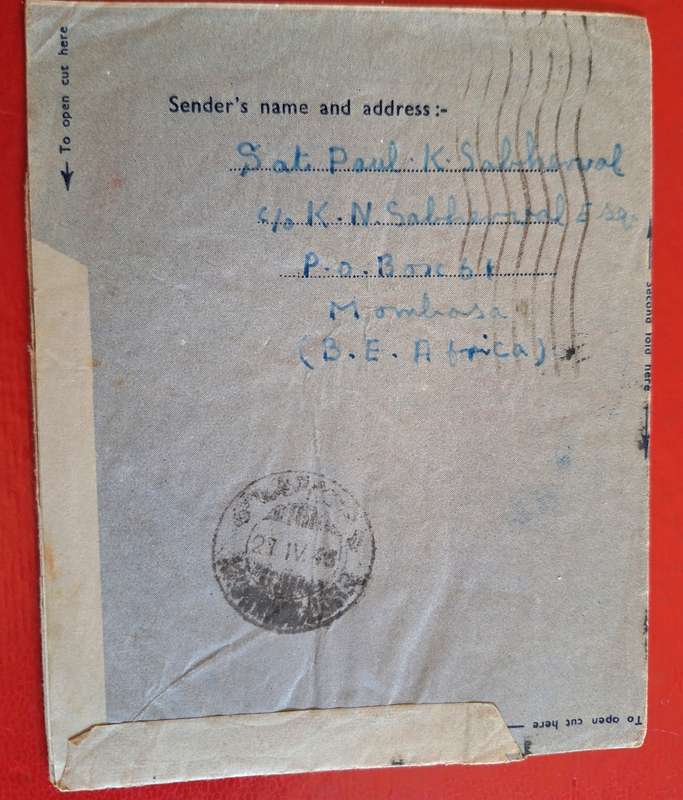 To open cut here
Sender's name and address :-
Sat Paul. K. Sabherwal
c/o K. N. Sabherwal Esq.
P. o. Box 61
Mombasa
(B. E. Africa)
second fold here
To open cut here